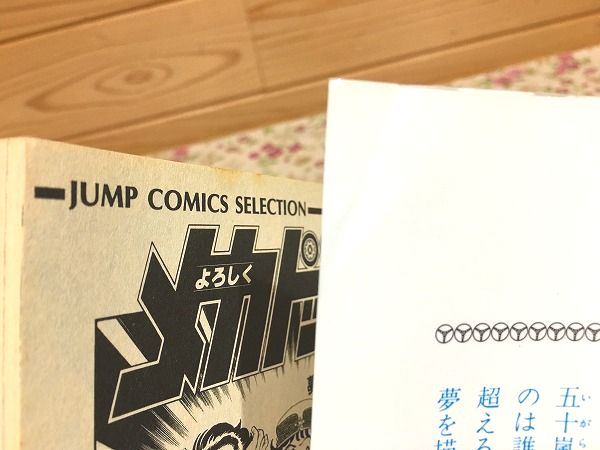 JUMP COMICS SELECTION
よろしく
メカド
五十嵐
いがら
のは誰
超える
夢を描